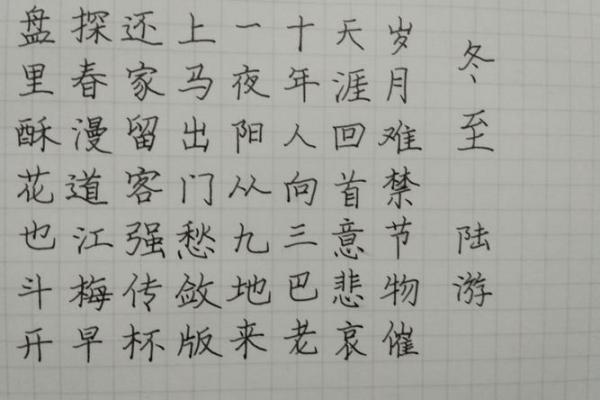 冬至 陆游
岁月难禁节物催
天涯回首意悲哀
十年人向三巴老
一夜阳从九地来
上马出门愁敛版
还家留客强传杯
探春漫道江梅早
盘里酥花也斗开